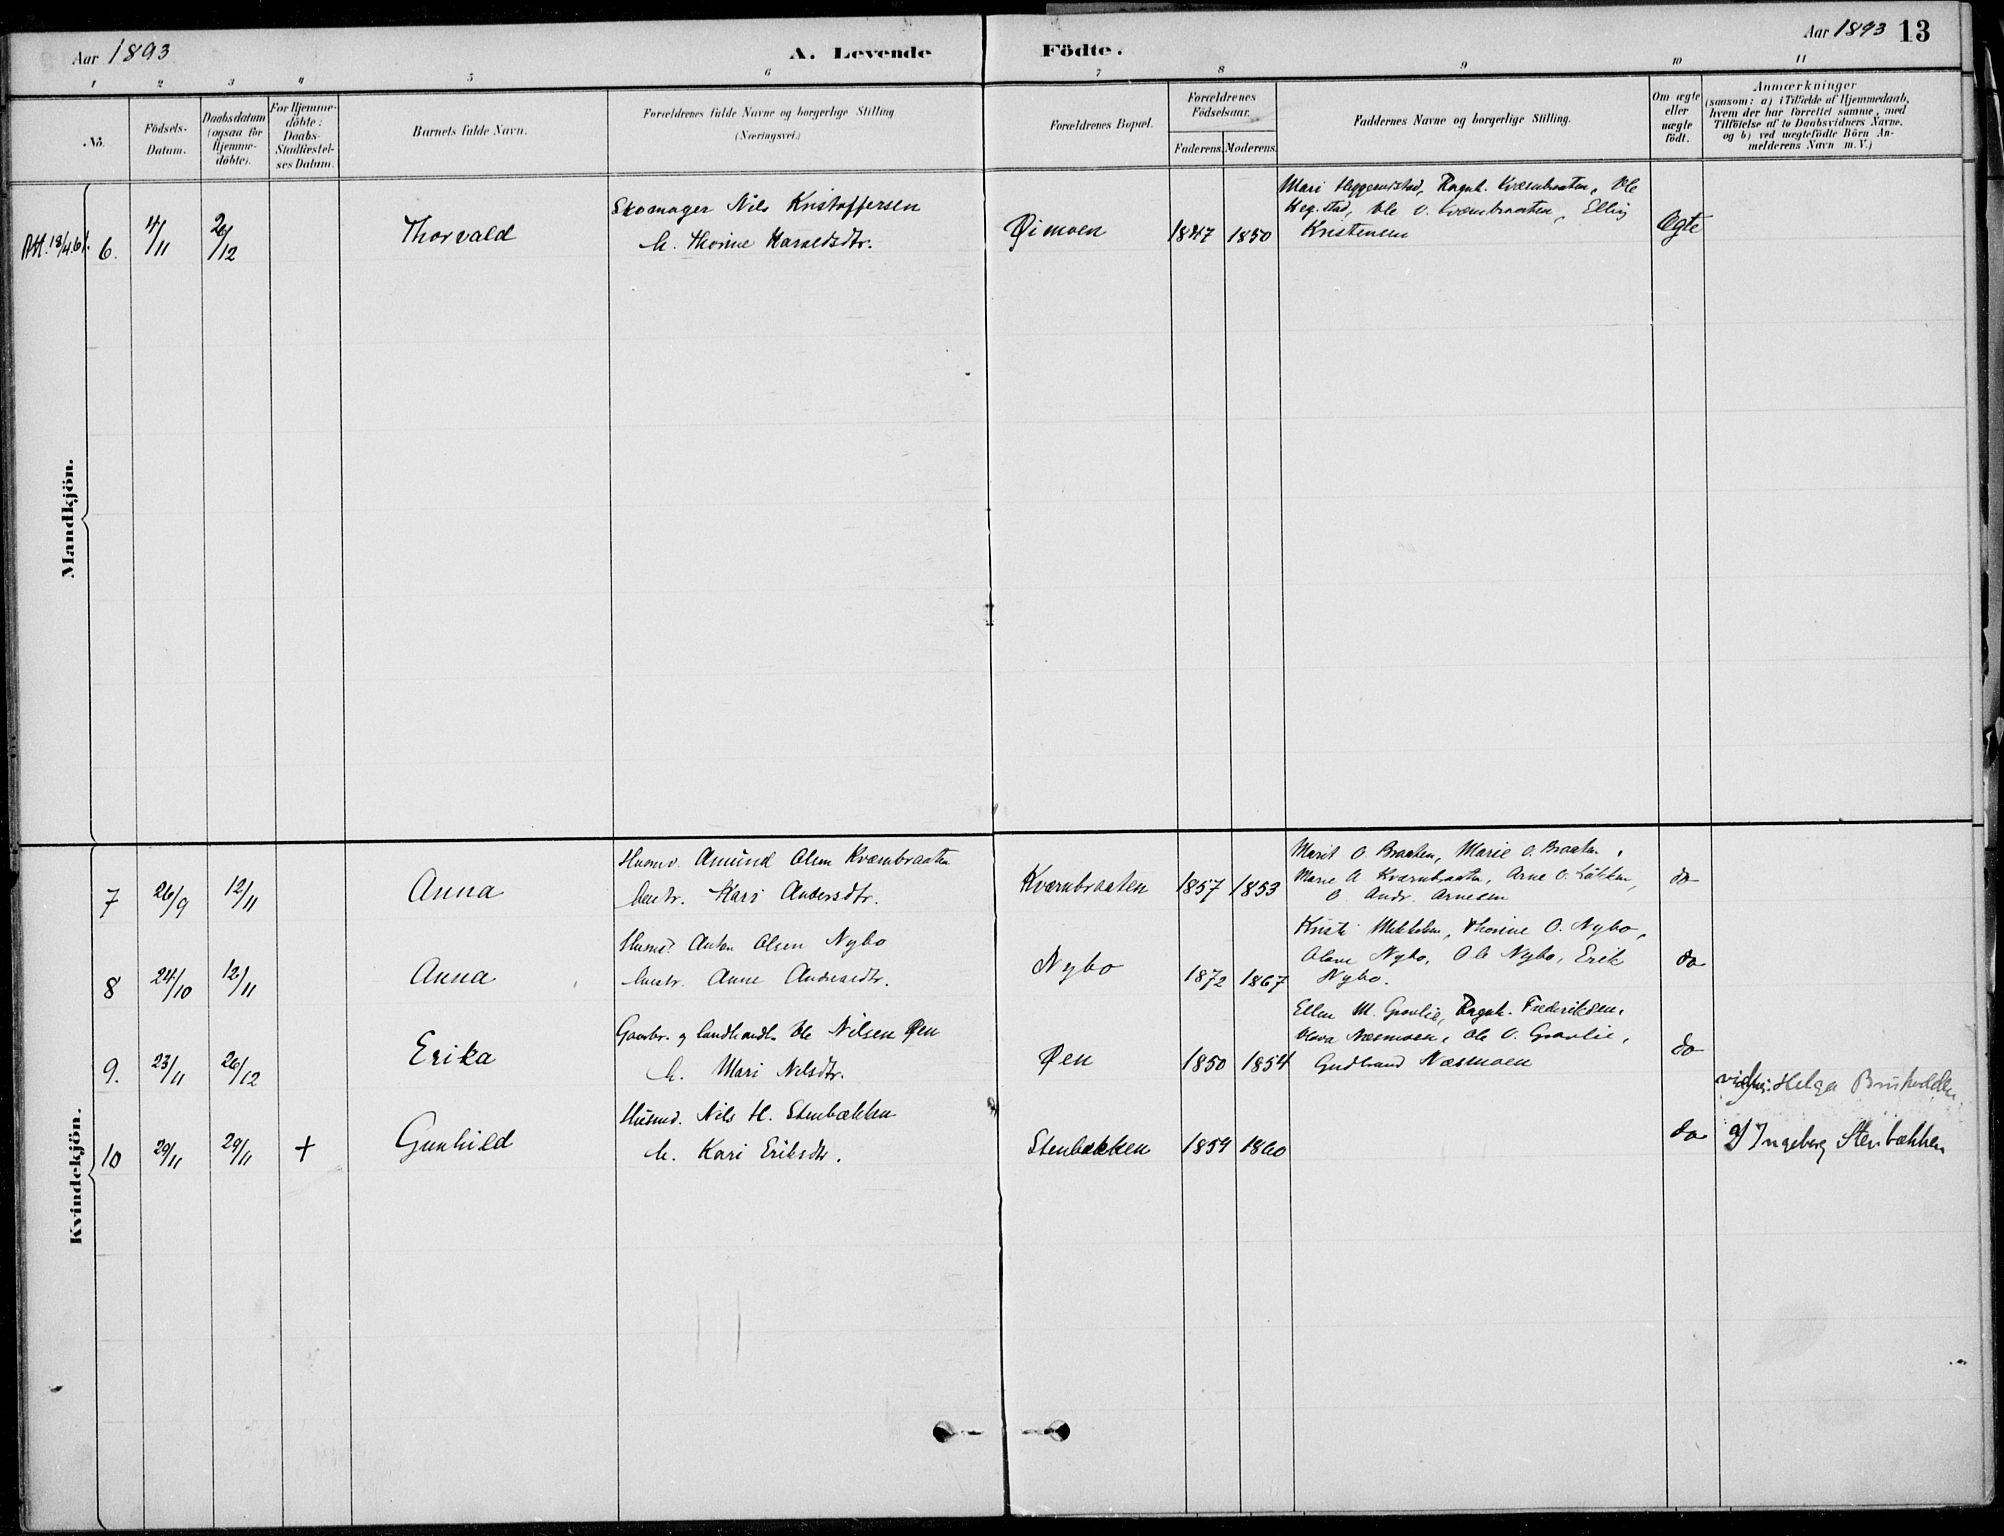 Aar 1893
A. Levende Födte.
Aar 1893 13
1 2 3 4 5 6 7 8 9 10 11
No.
Födsels-Datum.
Daabsdatum (ogsaa for Hjemmedöbte).
For Hjemmedöbte: Daabs-Stadfæstelses Datum.
Barnets fulde Navn.
Forældrenes fulde Navne og borgerlige Stilling
(Næringsvei.)
Forældrenes Bopæl.
Forældrenes Födselsaar.
Faderens. Moderens.
Faddernes Navne og borgerlige Stilling.
Om ægte eller uægte født.
Anmærkninger
(saasom: a) i Tilfælde af Hjemmedaab,
hvem der har forrettet samme, med
Tilföielse af to Daabsvidners Navne.
og b) ved uægtefödte Börn An-
melderens Navn m. V.)
Mandkjön.
6. 4/11 26/12 Thorvald
Skomager Nils Kristoffersen
h. Thorine Haraldsdtr.
Øimoen 1847 1850
Mari Heggerudstad, Ragnh. Kværnbraaten, Ole
Heg.stad, Ole O. Kværnbraaten, Elling
Kristensen
Ægte
Kvindekjön.
7 26/9 12/11 Anna
Husmd. Amund Olsen Kværnbraaten
hustr. Kari Andersdtr.
Kværnbraaten 1857 1853
Marit O Braaten, Marie O. Braaten,
Marie A Kværnbraaten, Arne O.
O. Andr. Arnesen
do
8 24/10 12/11 Anna
Husmd. Anton Olsen Nybo
hustr. Anne Andreasdtr.
Nybo 1872 1867
Kristi, Thorine O. Nybo,
Olava Nybo, Ole Nybo, Erik
Nybo.
do
9. 23/11 26/12 Erika
Gaardbr. og landhandl. Ole Nilsen Øen
h. Mari Nilsdtr.
Øen 1850 1854
Ellen M. Gravlie, Ragnh. Frederiksen,
Olava Næsmoen, Ole O. Gravlie,
Gudbrand Næsmoen
do
10 29/11 29/11 + Gunhild
Husmd. Nils H. Stenbækken
h. Kari Eriksdtr.
Stenbækken 1859 1860
do
Helga
og Ingeborg Stenbækken